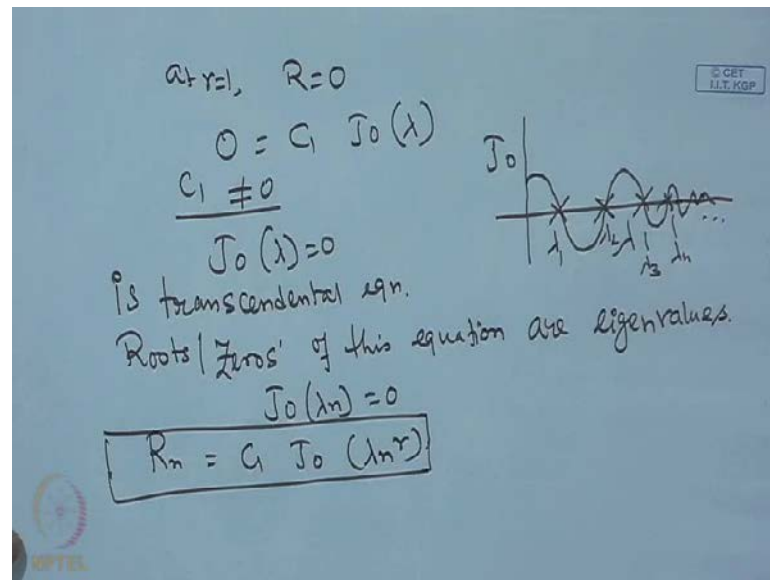 at r=1, R=0
© CET
I.I.T. KGP
0 = C₁ J₀(λ)
C₁ ≠ 0
J₀(λ)=0
J₀
λ₁ λ₂ λ λ₃ λₙ ...
is transcendental eqn.
Roots/Zeros' of this equation are eigenvalues.
J₀(λₙ)=0
Rₙ = C₁ J₀(λₙr)
NPTEL